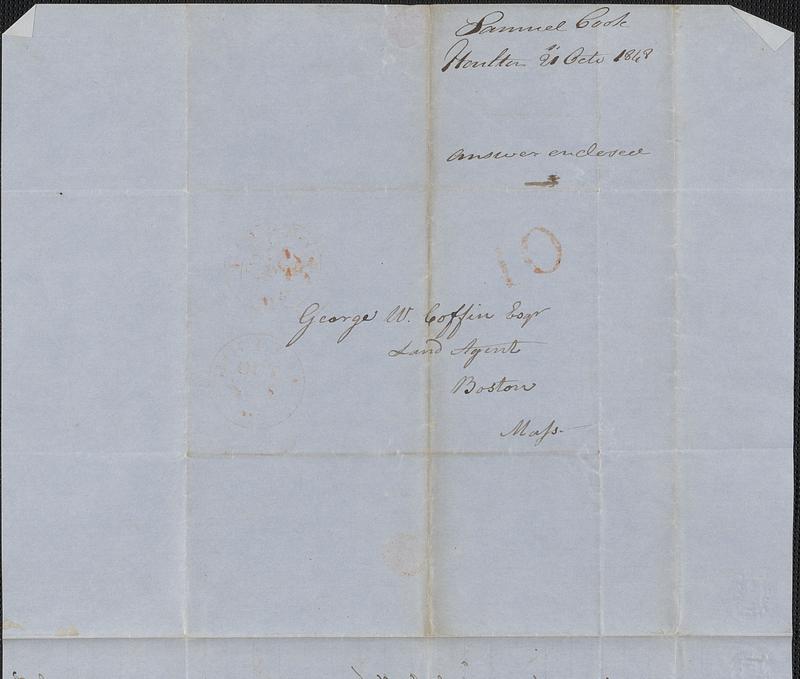 Samuel Cook
Houlton 21 Octo 1848
answer enclosed
10
George W. Coffin Esqr
Land Agent
Boston
Mass